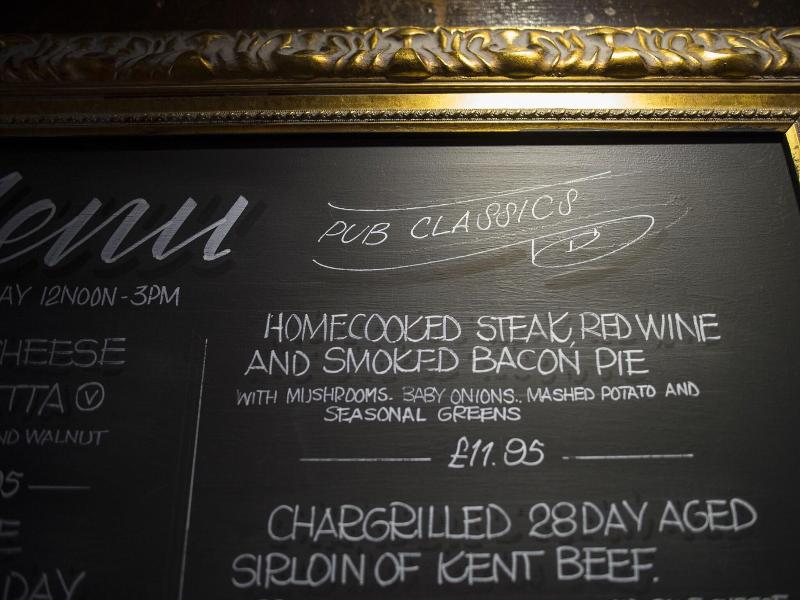 Menu
AY 12NOON-3PM
CHEESE
TTA V
ND WALNUT
95
DAY
PUB CLASSICS
HOMECOOKED STEAK, RED WINE
AND SMOKED BACON PIE
WITH MUSHROOMS. BABY ONIONS.. MASHED POTATO AND
SEASONAL GREENS
£11.95
CHARGRILLED 28 DAY AGED
SIRLOIN OF KENT BEEF.